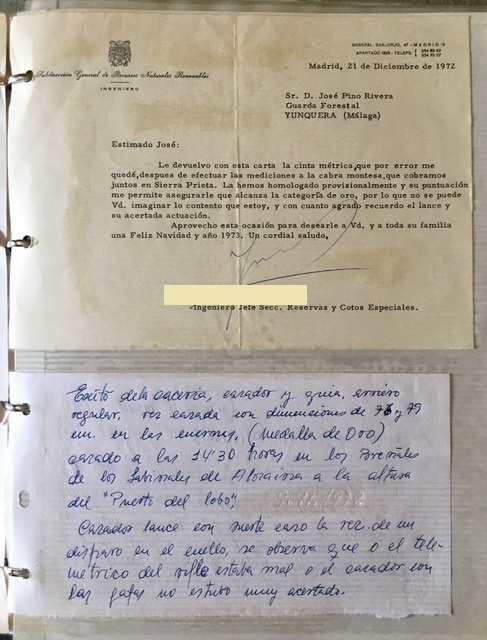 GENERAL SANJURJO, 47 - MADRID-3
APARTADO 1229 - TELEFS.
Subdirección General de Recursos Naturales Renovables
INGENIERO
Madrid, 21 de Diciembre de 1972
Sr. D. José Pino Rivera
Guarda Forestal
YUNQUERA (Málaga)
Estimado José:
Le devuelvo con esta carta la cinta métrica,que por error me
quedé,despues de efectuar las mediciones a la cabra montesa,que cobramos
juntos en Sierra Prieta. La hemos homologado provisionalmente y su puntuación
me permite asegurarle que alcanza la categoría de oro, por lo que no se puede
Vd. imaginar lo contento que estoy, y con cuanto agrado recuerdo el lance y
su acertada actuación.
Aprovecho esta ocasión para desearle a Vd. y a toda su familia
una Feliz Navidad y año 1973. Un cordial saludo,
Ingeniero Jefe Secc. Reservas y Cotos Especiales.
Exito de la caceria, cazador y guia, arriero
regular, rez cazada con dimenciones de 76 y 79
cm. en las cuernas, (Medalla de Oro)
cazado a las 14'30 horas en los Breñales
de los Sabinales de Alozaina a la altura
del "Puerto del lobo",
Cazador lance con suerte cazo la rez de un
disparo en el cuello, se observa que o el tele-
métrico del rifle estaba mal o el cazador con
las gafas no estubo muy acertado.